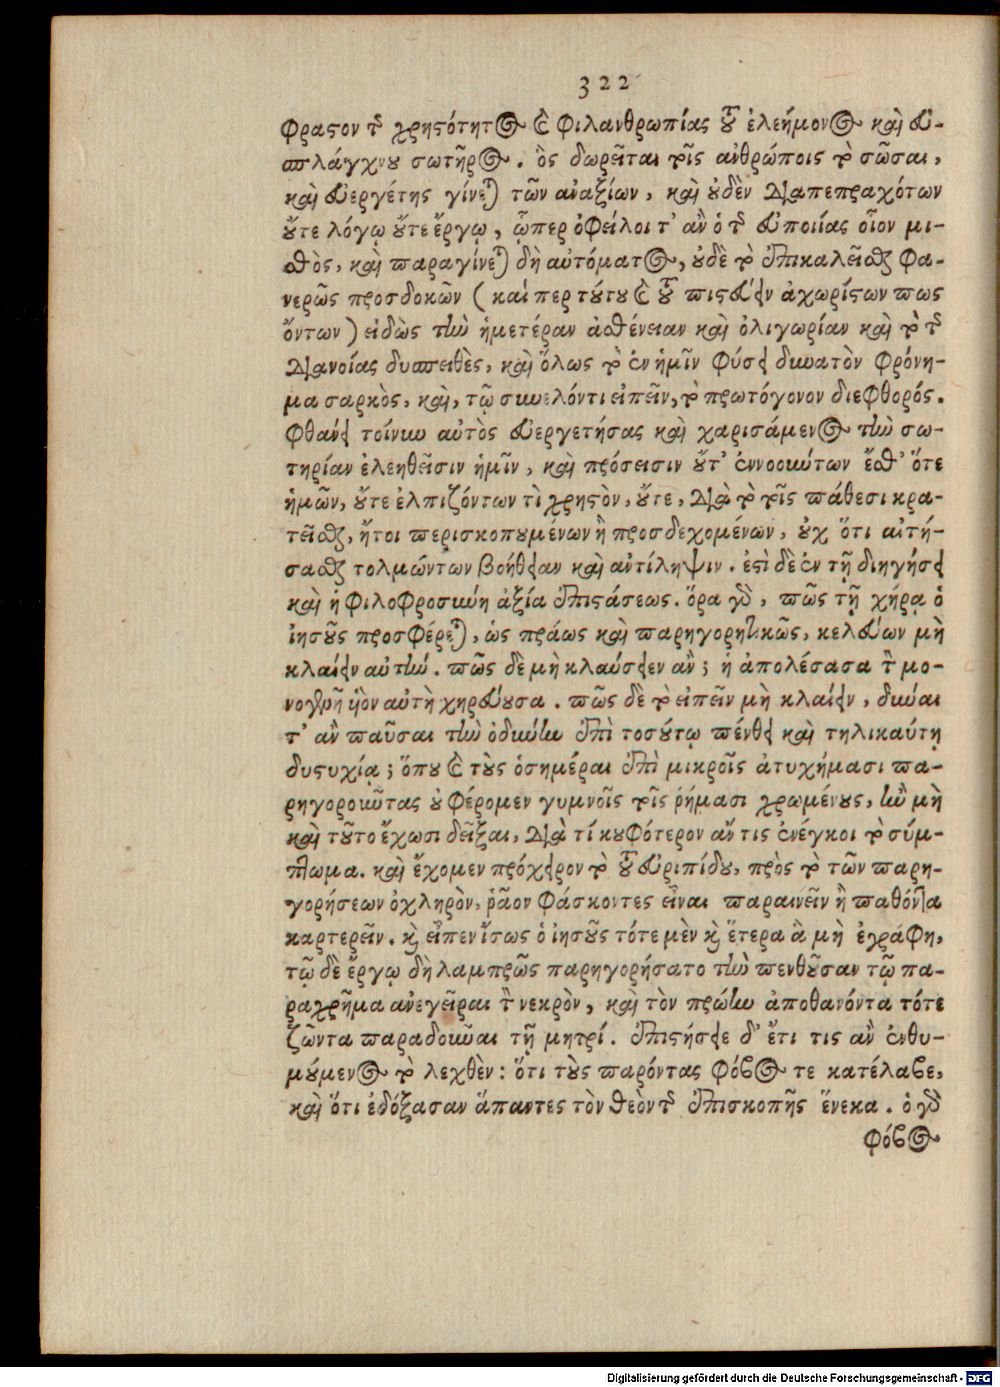 322
φραστον τῆς χρηστότητος καὶ φιλανθρωπίας τοῦ ἐλεήμονος καὶ εὐ-
σπλάγχνου σωτῆρος. ὃς δωρεῖται τοῖς ἀνθρώποις τὸ σῶσαι,
καὶ εὐεργέτης γίνεται τῶν ἀναξίων, καὶ οὐδὲν διαπεπραχότων
οὔτε λόγῳ οὔτε ἔργῳ, ᾧπερ ὀφείλοιτ' ἂν ὁ τῆς εὐποιίας οἷον μι-
σθὸς, καὶ παραγίνεται δὴ αὐτόματος, οὐδὲ τὸ ἐπικαλεῖσθαι φα-
νερῶς προσδοκῶν (καίπερ τούτου καὶ τοῦ πιστεύειν ἀχωρίστων πως
ὄντων) εἰδὼς τὴν ἡμετέραν ἀσθένειαν καὶ ὀλιγωρίαν καὶ τὸ τῆς
διανοίας δυσπειθὲς, καὶ ὅλως τὸ ἐν ἡμῖν φύσει δυνατὸν φρόνη-
μα σαρκὸς, καὶ, τῷ συνελόντι εἰπεῖν, τὸ πρωτόγονον διεφθορός.
φθάνει τοίνυν αὐτὸς εὐεργετήσας καὶ χαρισάμενος τὴν σω-
τηρίαν ἐλεηθεῖσιν ἡμῖν, καὶ πρόσεισιν οὔτ' ἐννοούντων ἔσθ' ὅτε
ἡμῶν, οὔτε ἐλπιζόντων τὶ χρηστὸν, οὔτε, διὰ τὸ τοῖς πάθεσι κρα-
τεῖσθαι, ἤτοι περισκοπουμένων ἢ προσδεχομένων, οὐχ ὅτι αἰτή-
σασθαι τολμώντων βοήθειαν καὶ ἀντίληψιν. ἐστὶ δὲ ἐν τῇ διηγήσει
καὶ ἡ φιλοφροσύνη ἀξία ἐπιστάσεως. ὅρα γὰρ, πῶς τῇ χήρᾳ ὁ
ἰησοῦς προσφέρεται, ὡς πράως καὶ παρηγορητικῶς, κελεύων μὴ
κλαίειν αὐτήν. πῶς δὲ μὴ κλαύσειεν ἄν; ἡ ἀπολέσασα τὸν μο-
νογενῆ υἱὸν αὐτὴ χηρεύουσα. πῶς δὲ τὸ εἰπεῖν μὴ κλαίειν, δύναι
τ' ἂν παῦσαι τὴν ὀδύνην ἐπὶ τοσούτῳ πένθει καὶ τηλικαύτῃ
δυστυχίᾳ; ὅπου καὶ τοὺς ὁσημέραι ἐπὶ μικροῖς ἀτυχήμασι πα-
ρηγοροῦντας οὐ φέρομεν γυμνοῖς τοῖς ῥήμασι χρωμένους, ἢν μὴ
καὶ τοῦτο ἔχωσι δεῖξαι, διὰ τί κουφότερον ἄν τις ἐνέγκοι τὸ σύμ-
πτωμα. καὶ ἔχομεν πρόχειρον τὸ τοῦ εὐριπίδου, πρὸς τὸ τῶν παρη-
γορήσεων ὀχληρὸν, ῥᾶον φάσκοντες εἶναι παραινεῖν ἢ παθόντα
καρτερεῖν. καὶ εἶπεν ἴσως ὁ ἰησοῦς τότε μὲν καὶ ἕτερα ἃ μὴ ἐγράφη,
τῷ δὲ ἔργῳ δὴ λαμπρῶς παρηγορήσατο τὴν πενθοῦσαν τῷ πα-
ραχρῆμα ἀνεγεῖραι τὸν νεκρὸν, καὶ τὸν πρώην ἀποθανόντα τότε
ζῶντα παραδοῦναι τῇ μητρί. ἐπιστήσειε δ' ἔτι τις ἂν ἐνθυ-
μούμενος τὸ λεχθὲν: ὅτι τοὺς παρόντας φόβος τε κατέλαβε,
καὶ ὅτι ἐδόξασαν ἅπαντες τὸν θεὸν τῆς ἐπισκοπῆς ἕνεκα. ὁ γὰρ
φόβος
Digitalisierung gefördert durch die Deutsche Forschungsgemeinschaft - DFG